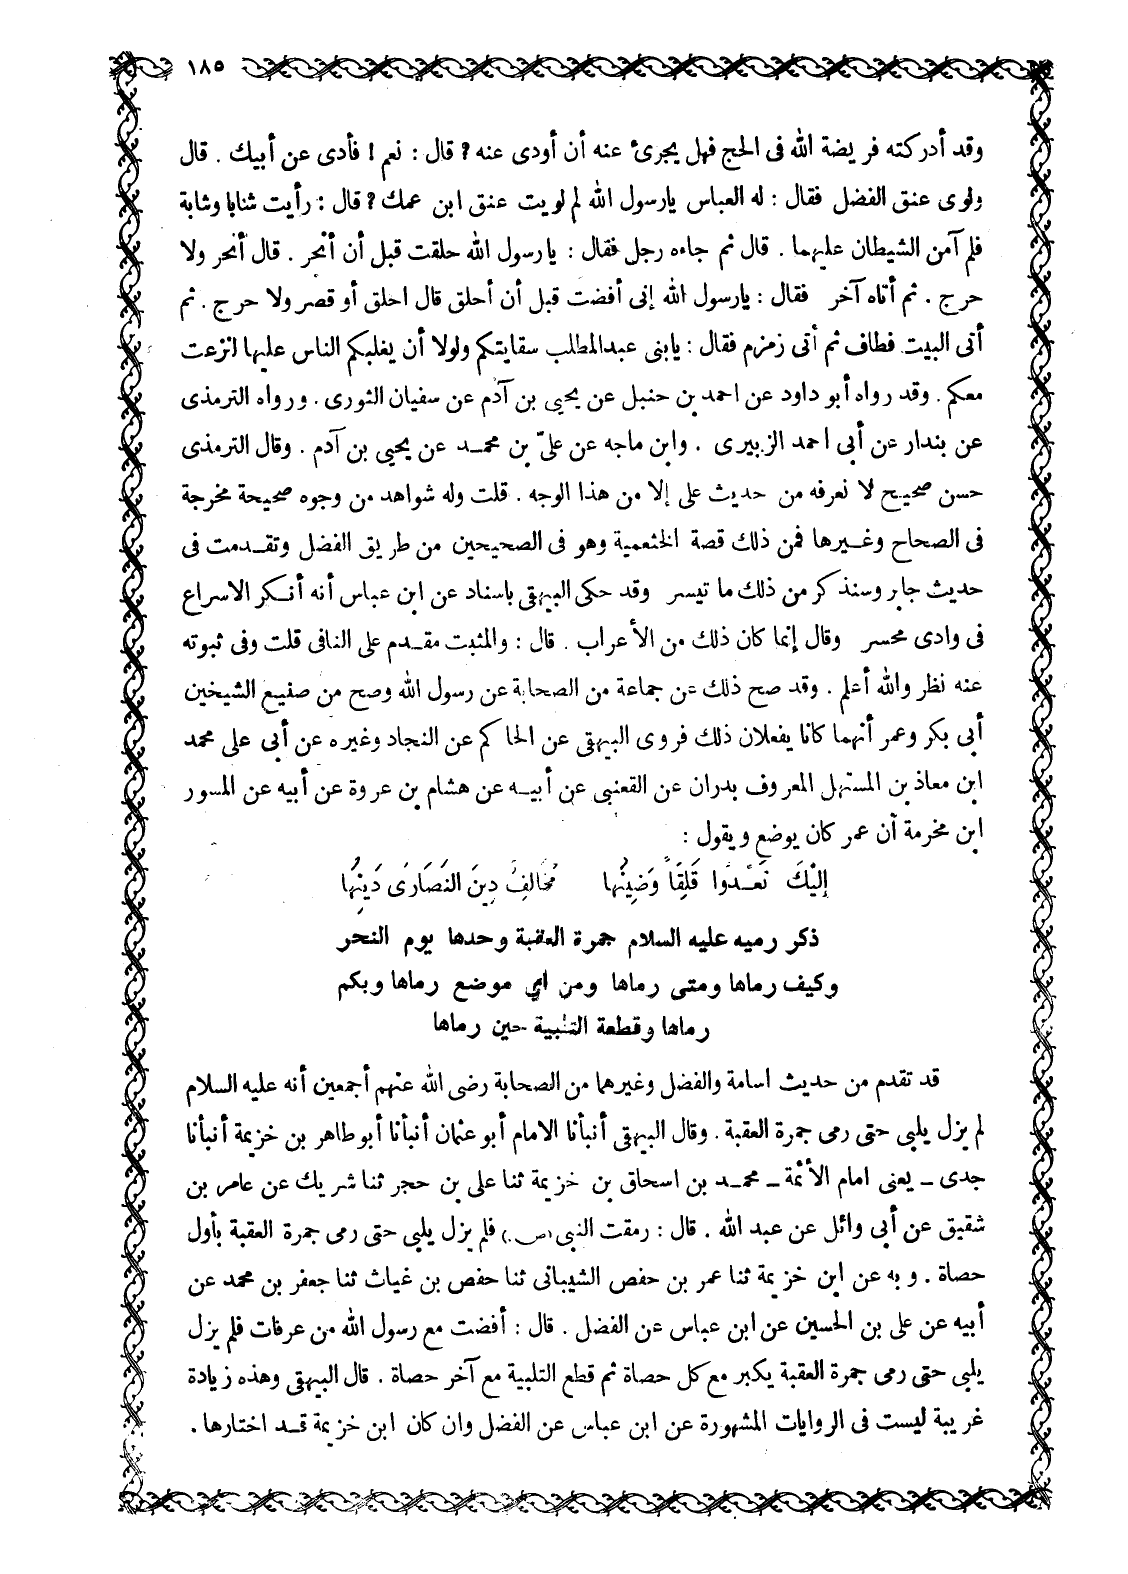 ١٨٥
وقد أدركته فريضة الله فى الحج فهل يجرئ عنه أن أودى عنه ? قال : نعم ! فأدى عن أبيك . قال
ولوى عنق الفضل فقال : له العباس يارسول الله لم لويت عنق ابن عمك ? قال : رأيت شنابا وشابة
فلم آمن الشيطان عليهما . قال ثم جاءه رجل فقال : يا رسول الله حلقت قبل أن أنحر . قال أنحر ولا
حرج . ثم أتاه آخر فقال : يارسول الله إنى أفضت قبل أن أحلق قال احلق أو قصر ولا حرج . ثم
أتى البيت فطاف ثم أتى زمزم فقال : يابنى عبدالمطلب سقايتكم ولولا أن يغلبكم الناس عليها لنزعت
معكم . وقد رواه أبو داود عن احمد بن حنبل عن يحيى بن آدم عن سفيان الثورى . ورواه الترمذى
عن بندار عن أبى احمد الزبيرى . وابن ماجه عن علىّ بن محمد عن يحيى بن آدم . وقال الترمذى
حسن صحيح لا نعرفه من حديث على إلا من هذا الوجه . قلت وله شواهد من وجوه صحيحة مخرجة
فى الصحاح وغيرها فمن ذلك قصة الخثعمية وهو فى الصحيحين من طريق الفضل وتقدمت فى
حديث جابر وسنذكر من ذلك ما تيسر وقد حكى البيهقى باسناد عن ابن عباس أنه أنكر الاسراع
فى وادى محسر وقال إنما كان ذلك من الأعراب . قال : والمثبت مقدم على النافى قلت وفى ثبوته
عنه نظر والله أعلم . وقد صح ذلك عن جماعة من الصحابة عن رسول الله وصح من صنيع الشيخين
أبى بكر وعمر أنهما كانا يفعلان ذلك فروى البيهقى عن الحاكم عن النجاد وغيره عن أبى على محمد
ابن معاذ بن المستهل المعروف بدران عن القعنبى عن أبيه عن هشام بن عروة عن أبيه عن المسور
ابن مخرمة أن عمر كان يوضع ويقول :
إِلَيْكَ تَعْدُوا قَلِقًا وَضِينُهَا مُخَالِفُ دِينَ النَصَارَى دَينِهَا
ذكر رميه عليه السلام جمرة العقبة وحدها يوم النحر
وكيف رماها ومتى رماها ومن اى موضع رماها وبكم
رماها وقطعة التلبية حين رماها
قد تقدم من حديث اسامة والفضل وغيرهما من الصحابة رضى الله عنهم أجمعين أنه عليه السلام
لم يزل يلبى حتى رمى جمرة العقبة . وقال البيهقى أنبأنا الامام أبو عثمان أنبأنا أبو طاهر بن خزيمة أنبأنا
جدى ــ يعنى امام الأئمة ــ محمد بن اسحاق بن خزيمة ثنا على بن حجر ثنا شريك عن عامر بن
شقيق عن أبى وائل عن عبد الله . قال : رمقت النبى (ص.) فلم يزل يلبى حتى رمى جمرة العقبة بأول
حصاة . و به عن ابن خزيمة ثنا عمر بن حفص الشيبانى ثنا حفص بن غياث ثنا جعفر بن محمد عن
أبيه عن على بن الحسين عن ابن عباس عن الفضل . قال : أفضت مع رسول الله من عرفات فلم يزل
يلبى حتى رمى جمرة العقبة يكبر مع كل حصاة ثم قطع التلبية مع آخر حصاة . قال البيهقى وهذه زيادة
غريبة ليست فى الروايات المشهورة عن ابن عباس عن الفضل وان كان ابن خزيمة قد اختارها .